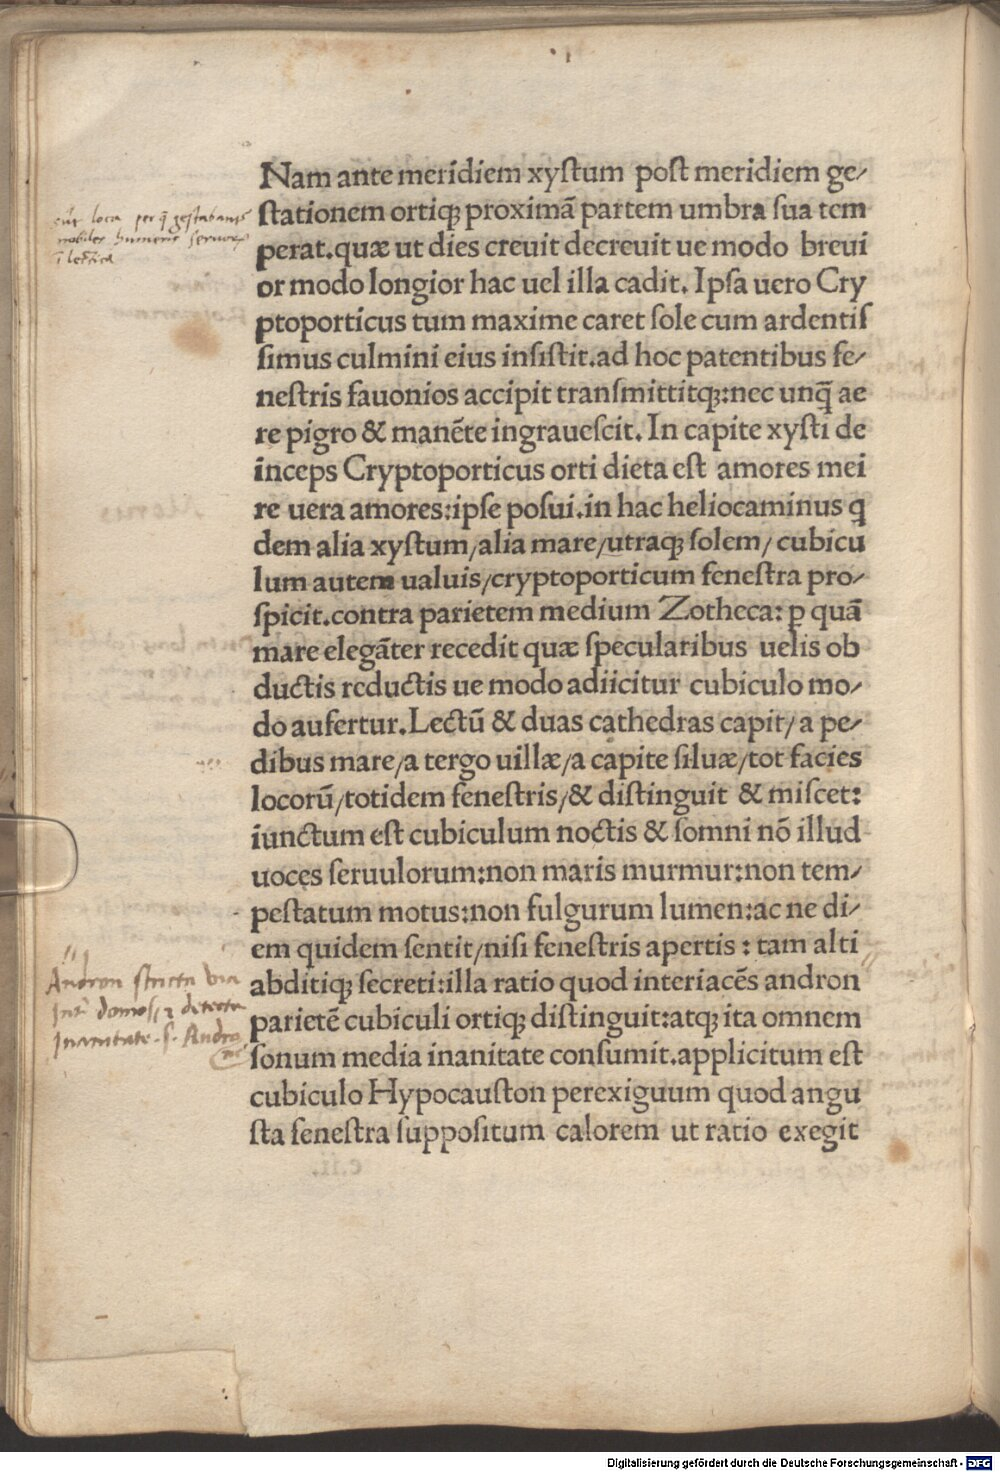 Nam ante meridiem xyſtum poſt meridiem ge/
ſtationem ortiqꝫ proximā partem umbra ſua tem
perat.quæ ut dies creuit decreuit ue modo breui
or modo longior hac uel illa cadit. Ipſa uero Cry
ptoporticus tum maxime caret ſole cum ardentiſ
ſimus culmini eius inſiſtit.ad hoc patentibus fe/
neſtris fauonios accipit tranſmittitqꝫ:nec unq̄ ae
re pigro & manēte ingraueſcit. In capite xyſti de
inceps Cryptoporticus orti dieta eſt amores mei
re uera amores:ipſe poſui.in hac heliocaminus q
dem alia xyſtum/alia mare/utraqꝫ ſolem/ cubicu
lum autem ualuis/cryptoporticum feneſtra pro/
ſpicit.contra parietem medium Zotheca: ꝑ quā
mare elegāter recedit quæ ſpecularibus uelis ob
ductis reductis ue modo adiicitur cubiculo mo/
do aufertur.Lectū & duas cathedras capit/ a pe/
dibus mare/a tergo uillæ/a capite ſiluæ/tot facies
locorū/totidem feneſtris/& diſtinguit & miſcet:
iunctum eſt cubiculum noctis & ſomni nō illud
uoces ſeruulorum:non maris murmur:non tem/
peſtatum motus:non fulgurum lumen:ac ne di/
em quidem ſentit/niſi feneſtris apertis : tam alti
abditiqꝫ ſecreti:illa ratio quod interiacēs andron
parietē cubiculi ortiqꝫ diſtinguit:atqꝫ ita omnem
ſonum media inanitate conſumit.applicitum eſt
cubiculo Hypocauſton perexiguum quod angu
ſta feneſtra ſuppoſitum calorem ut ratio exegit
loca per q̄ geſtabantr
nobiles humeris ſeruorꝫ
ī lectica
Andron ſtricta via
Int domoſ detecta
Inanitate .ſ. Andro
Digitalisierung gefördert durch die Deutsche Forschungsgemeinschaft - DFG